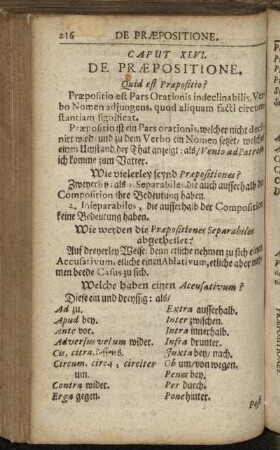 216 DE PRÆPOSITIONE.
CAPUT XLVI.
DE PRÆPOSITIONE.
Quid est Præpositio?
Præpositio est Pars Orationis indeclinabilis, Ver-
bo Nomen adjungens, quod aliquam facti circum-
stantiam significat.
Præpositio ist ein Pars orationis, welches nicht decli-
nirt wird/ und zu dem Verbo ein Nomen setzet/ welches
einen Umstand der That anzeigt: als/ Venio ad Patrem
ich komme zum Vatter.
Wie vielerley seynd Præpositiones?
Zweyerley: als 1. Separabiles, die auch ausserhalb der
Composition ihre Bedeutung haben.
2. Inseparabiles, die ausserhalb der Composition
keine Bedeutung haben.
Wie werden die Præpositiones Separabiles
abgetheilet?
Auf dreyerley Weise: denn etliche nehmen zu sich einen
Accusativum, etliche einen Ablativum, etliche aber neh-
men beede Casus zu sich.
Welche haben einen Accusativum?
Diese ein und dreyssig: als/
Ad zu.
Apud bey.
Ante vor.
Adversus velum wider.
Cis, citra,
Circum, circa, circiter
um.
Contra wider.
Erga gegen.
Extra ausserhalb.
Inter zwischen.
Intra innerhalb.
Infra drunter.
Juxta bey/ nach.
Ob um/ von wegen.
Penes bey.
Per durch.
Pone hinter.
Post